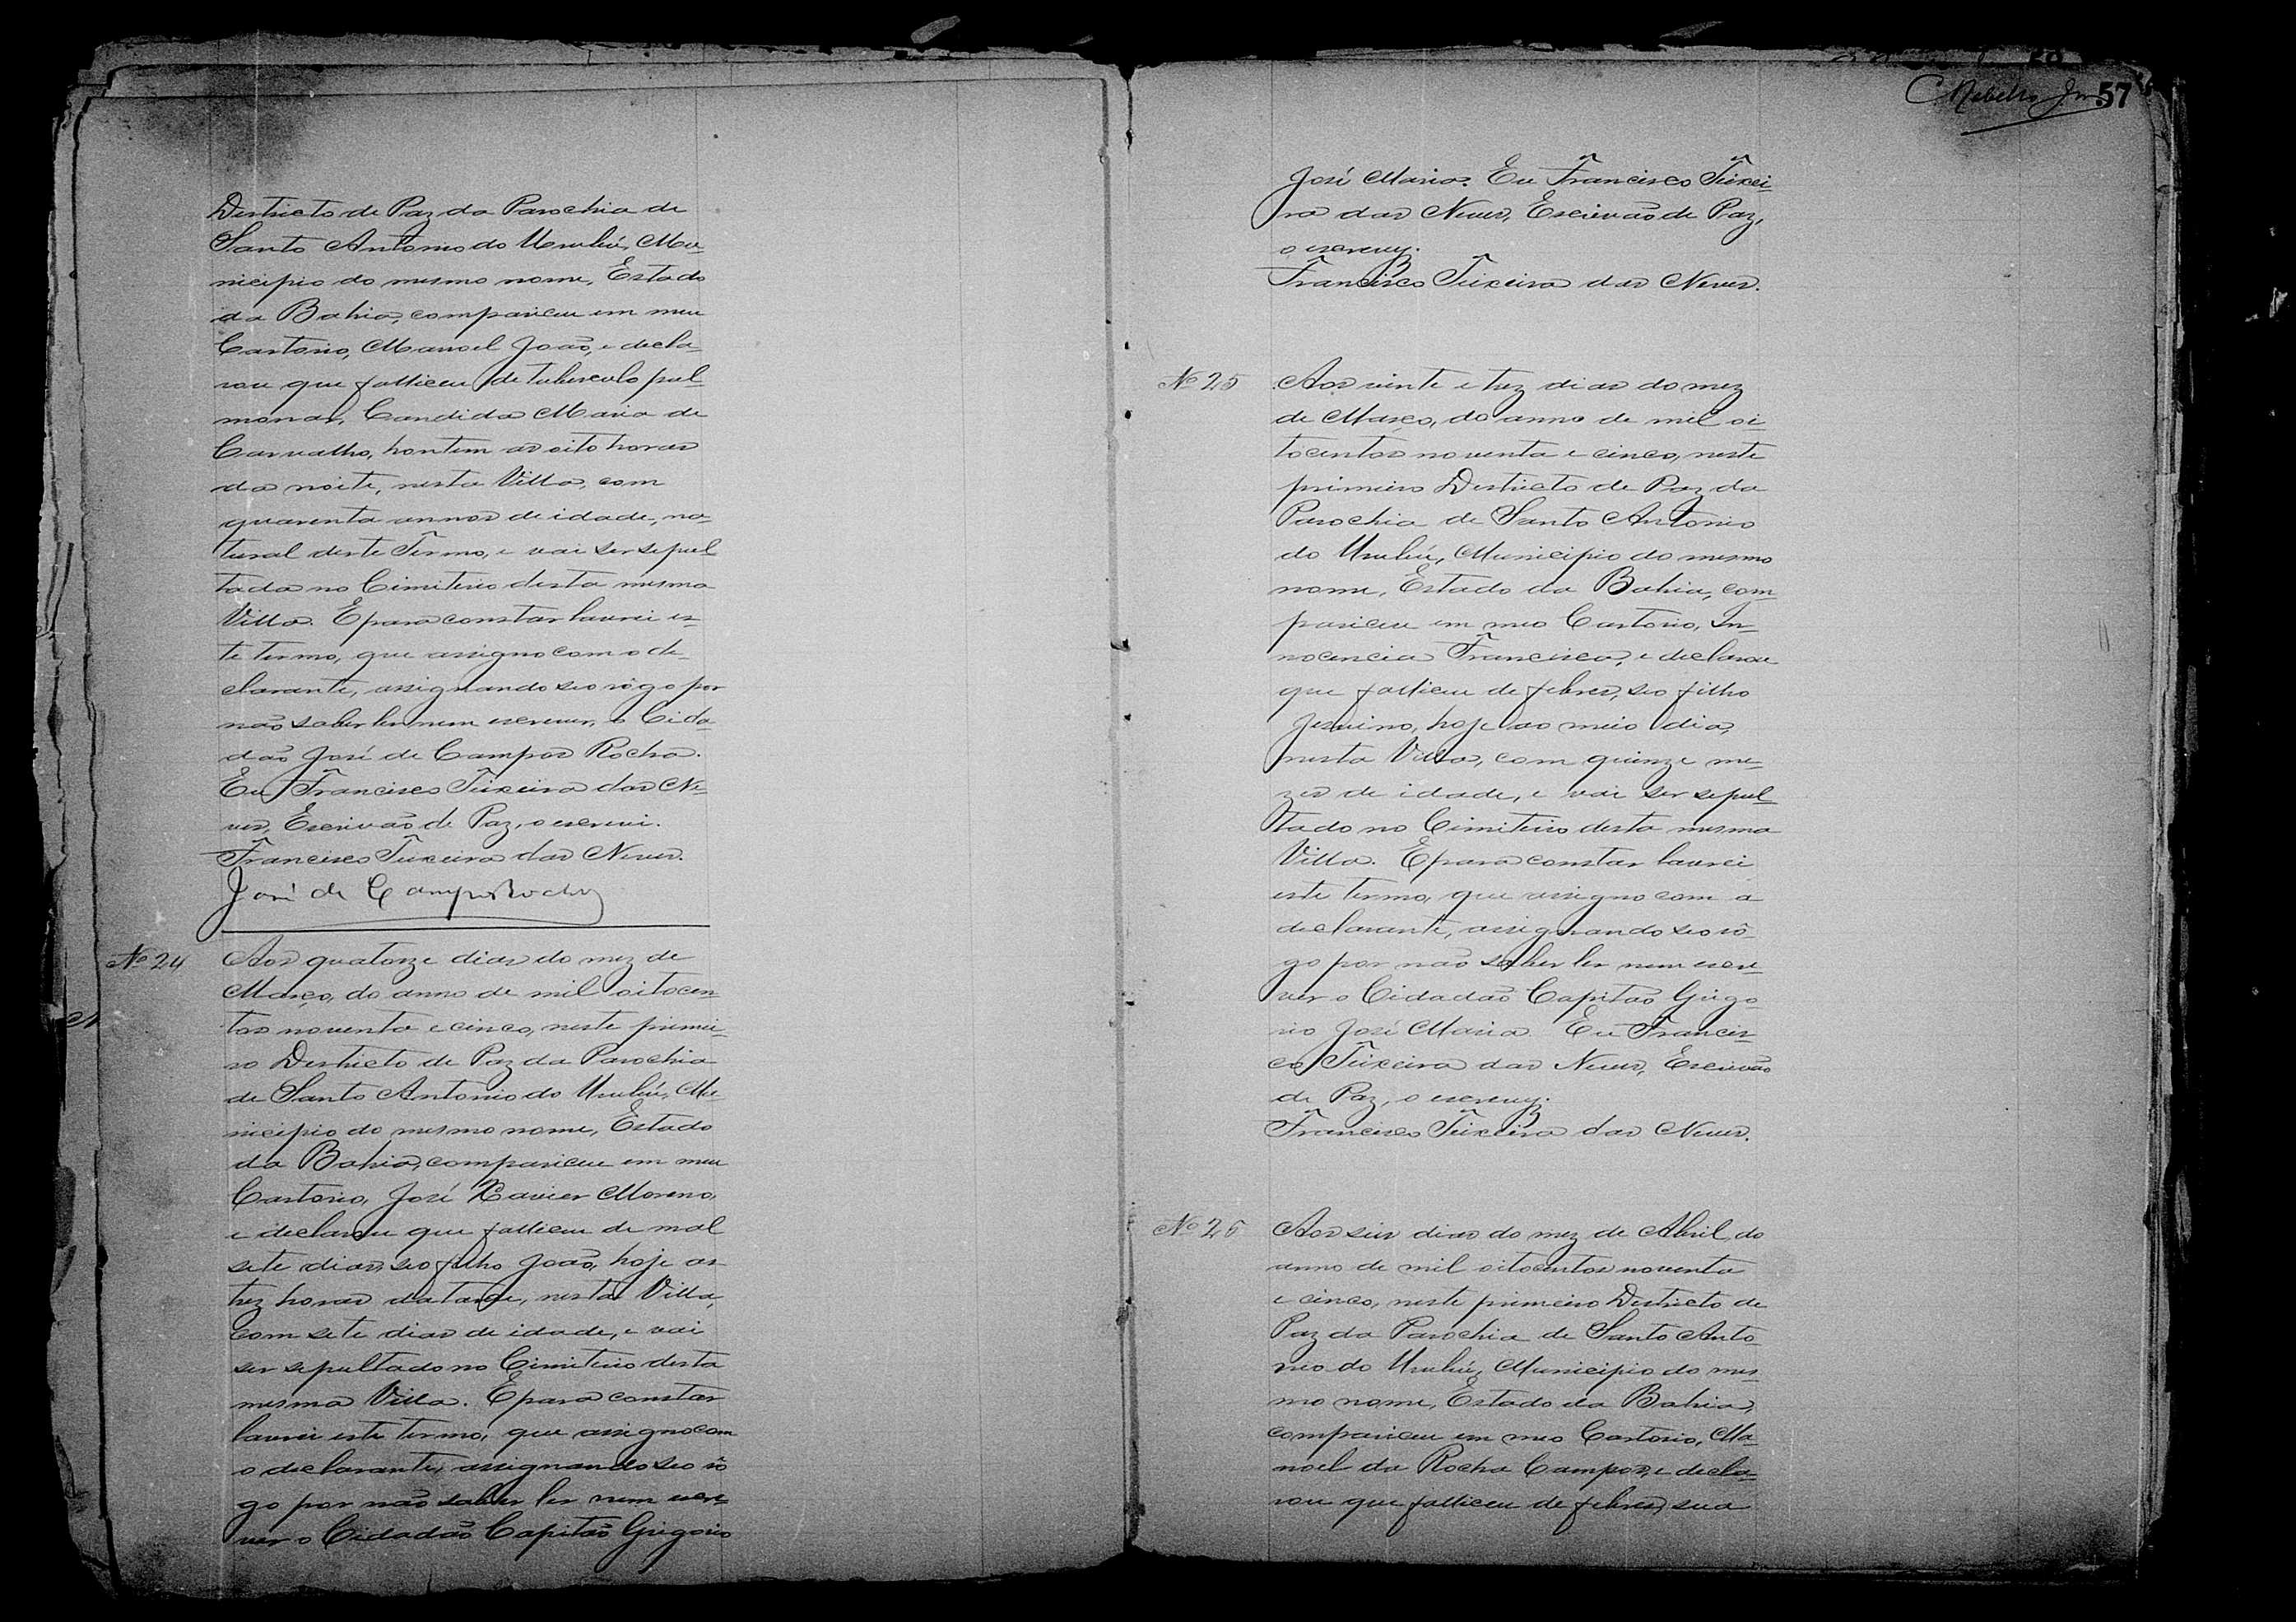 Destricto de Paz da Parochia de
Santo Antonio do Urubú, Mu-
nicipio do mesmo nome, Estado
da Bahia, compariceu em meu
Cartorio, Manoel João, e decla-
rou que falliceu de tuberculo pul-
monar, Candida Maria de
Carvalho, hontem as oito horas
da noite, nesta Villa, com
quarenta annos de idade, na-
tural deste Termo, e vai ser sepul-
tada no Cimiterio desta mesma
Villa. E para constar lavrei es-
te termo, que assigno com o de-
clarante, assignando seo rôgo por
não saber ler nem escrever, o Cida-
dão José de Campos Rocha.
Eu Francisco Teixeira das Ne-
ves, Escrivão de Paz, o escrevi.
Francisco Teixeira das Neves.
José de Campos Rocha
Nº 24
Aos quatorze dias do mez de
Março, do anno de mil oitocen-
tos noventa e cinco, neste primei-
ro Destricto de Paz da Parochia
de Santo Antonio do Urubú, Mu-
nicipio do mesmo nome, Estado
da Bahia, compariceu em meu
Cartorio, José Xavier Moreno,
e declarou que falliceu de mal
sete dias, seo filho João, hoje as
trez horas da tarde, nesta Villa,
com sete dias de idade, e vai
ser sepultado no Cimiterio desta
mesma Villa. E para constar
lavrei este termo, que assigno com
o declarante, assignando seo rô-
go por não saber ler nem escre-
ver o Cidadão Capitão Grigorio
57
José Maria. Eu Francisco Teixei-
ra das Neves, Escrivão de Paz,
o escrevy.
Francisco Teixeira das Neves.
Nº 25
Aos vinte e trez dias do mez
de Março, do anno de mil oi-
tocentos noventa e cinco, neste
primeiro Destricto de Paz da
Parochia de Santo Antonio
do Urubú, Municipio do mesmo
nome, Estado da Bahia, com-
pariceu em meo Cartorio, In-
nocencia Francisca, e declarou
que falliceu de febres, seo filho
Jesuino, hoje ao meio dia,
nesta Villa, com quinze me-
zes de idade, e vai ser sepul-
tado no Cimiterio desta mesma
Villa. E para constar lavrei
este termo, que assigno com a
declarante, assignando seo rô-
go por não saber ler nem escre-
ver o Cidadão Capitão Grigo-
rio José Maria. Eu Francis-
co Teixeira das Neves, Escrivão
de Paz, o escrevy.
Francisco Teixeira das Neves.
Nº 25
Aos seis dias do mez de Abril, do
anno de mil oitocentos noventa
e cinco, neste primeiro Destricto de
Paz da Parochia de Santo Anto-
nio do Urubú, Municipio do mes-
mo nome, Estado da Bahia,
compariceu em meo Cartorio, Ma-
noel da Rocha Campos, e decla-
rou que falliceu de febres, sua